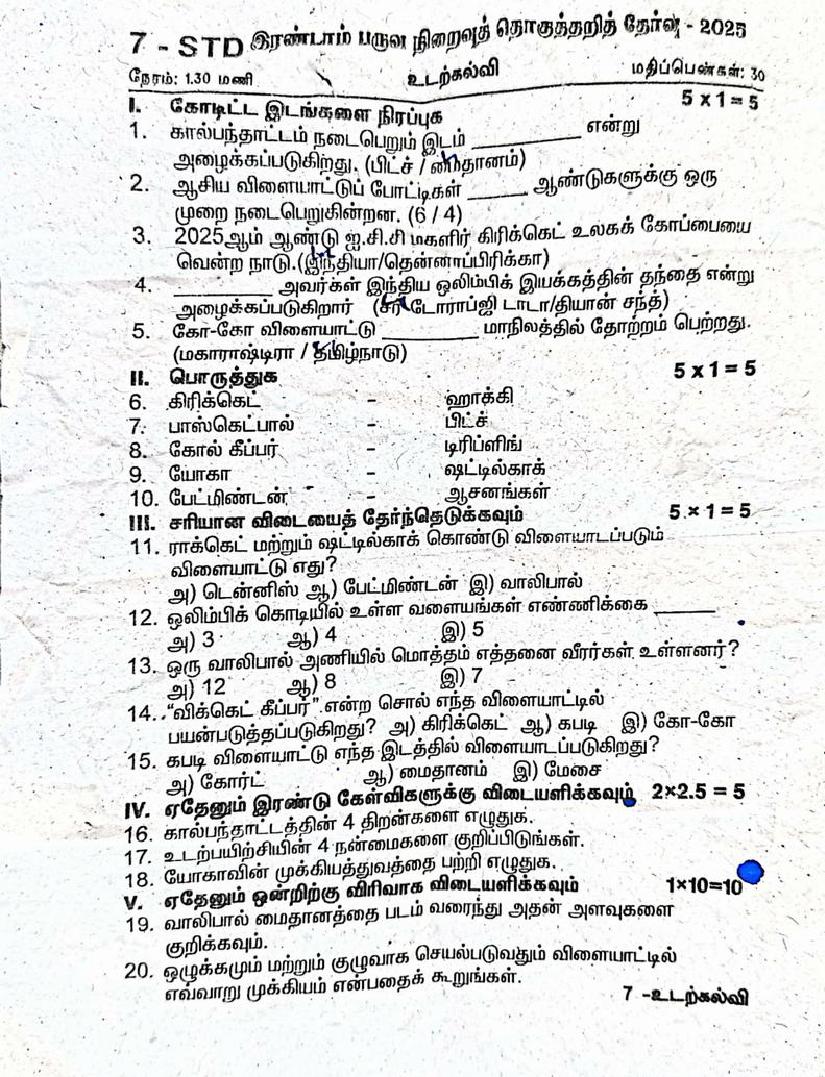 7 - STD இரண்டாம் பருவ நிறைவுத் தொகுத்தறித் தேர்வு - 2025
நேரம்: 1.30 மணி உடற்கல்வி மதிப்பெண்கள்: 30
I. கோடிட்ட இடங்களை நிரப்புக 5 x 1 = 5
1. கால்பந்தாட்டம் நடைபெறும் இடம் __________ என்று
அழைக்கப்படுகிறது. (பிட்ச் / மைதானம்)
2. ஆசிய விளையாட்டுப் போட்டிகள் ______ ஆண்டுகளுக்கு ஒரு
முறை நடைபெறுகின்றன. (6 / 4)
3. 2025ஆம் ஆண்டு ஐ.சி.சி மகளிர் கிரிக்கெட் உலகக் கோப்பையை
வென்ற நாடு.(இந்தியா/தென்னாப்பிரிக்கா)
4. _________ அவர்கள் இந்திய ஒலிம்பிக் இயக்கத்தின் தந்தை என்று
அழைக்கப்படுகிறார் (சர் டோராப்ஜி டாடா/தியான் சந்த்)
5. கோ-கோ விளையாட்டு _________ மாநிலத்தில் தோற்றம் பெற்றது.
(மகாராஷ்டிரா / தமிழ்நாடு)
II. பொருத்துக 5 x 1 = 5
6. கிரிக்கெட் - ஹாக்கி
7. பாஸ்கெட்பால் - பிட்ச்
8. கோல் கீப்பர் - டிரிப்ளிங்
9. யோகா - ஷட்டில்காக்
10. பேட்மிண்டன் - ஆசனங்கள்
III. சரியான விடையைத் தேர்ந்தெடுக்கவும் 5 × 1 = 5
11. ராக்கெட் மற்றும் ஷட்டில்காக் கொண்டு விளையாடப்படும்
விளையாட்டு எது?
அ) டென்னிஸ் ஆ) பேட்மிண்டன் இ) வாலிபால்
12. ஒலிம்பிக் கொடியில் உள்ள வளையங்கள் எண்ணிக்கை ______
அ) 3 ஆ) 4 இ) 5
13. ஒரு வாலிபால் அணியில் மொத்தம் எத்தனை வீரர்கள் உள்ளனர்?
அ) 12 ஆ) 8 இ) 7
14. “விக்கெட் கீப்பர்” என்ற சொல் எந்த விளையாட்டில்
பயன்படுத்தப்படுகிறது? அ) கிரிக்கெட் ஆ) கபடி இ) கோ-கோ
15. கபடி விளையாட்டு எந்த இடத்தில் விளையாடப்படுகிறது?
அ) கோர்ட் ஆ) மைதானம் இ) மேசை
IV. ஏதேனும் இரண்டு கேள்விகளுக்கு விடையளிக்கவும் 2×2.5 = 5
16. கால்பந்தாட்டத்தின் 4 திறன்களை எழுதுக.
17. உடற்பயிற்சியின் 4 நன்மைகளை குறிப்பிடுங்கள்.
18. யோகாவின் முக்கியத்துவத்தை பற்றி எழுதுக.
V. ஏதேனும் ஒன்றிற்கு விரிவாக விடையளிக்கவும் 1×10=10
19. வாலிபால் மைதானத்தை படம் வரைந்து அதன் அளவுகளை
குறிக்கவும்.
20. ஒழுக்கமும் மற்றும் குழுவாக செயல்படுவதும் விளையாட்டில்
எவ்வாறு முக்கியம் என்பதைக் கூறுங்கள்.
7 -உடற்கல்வி